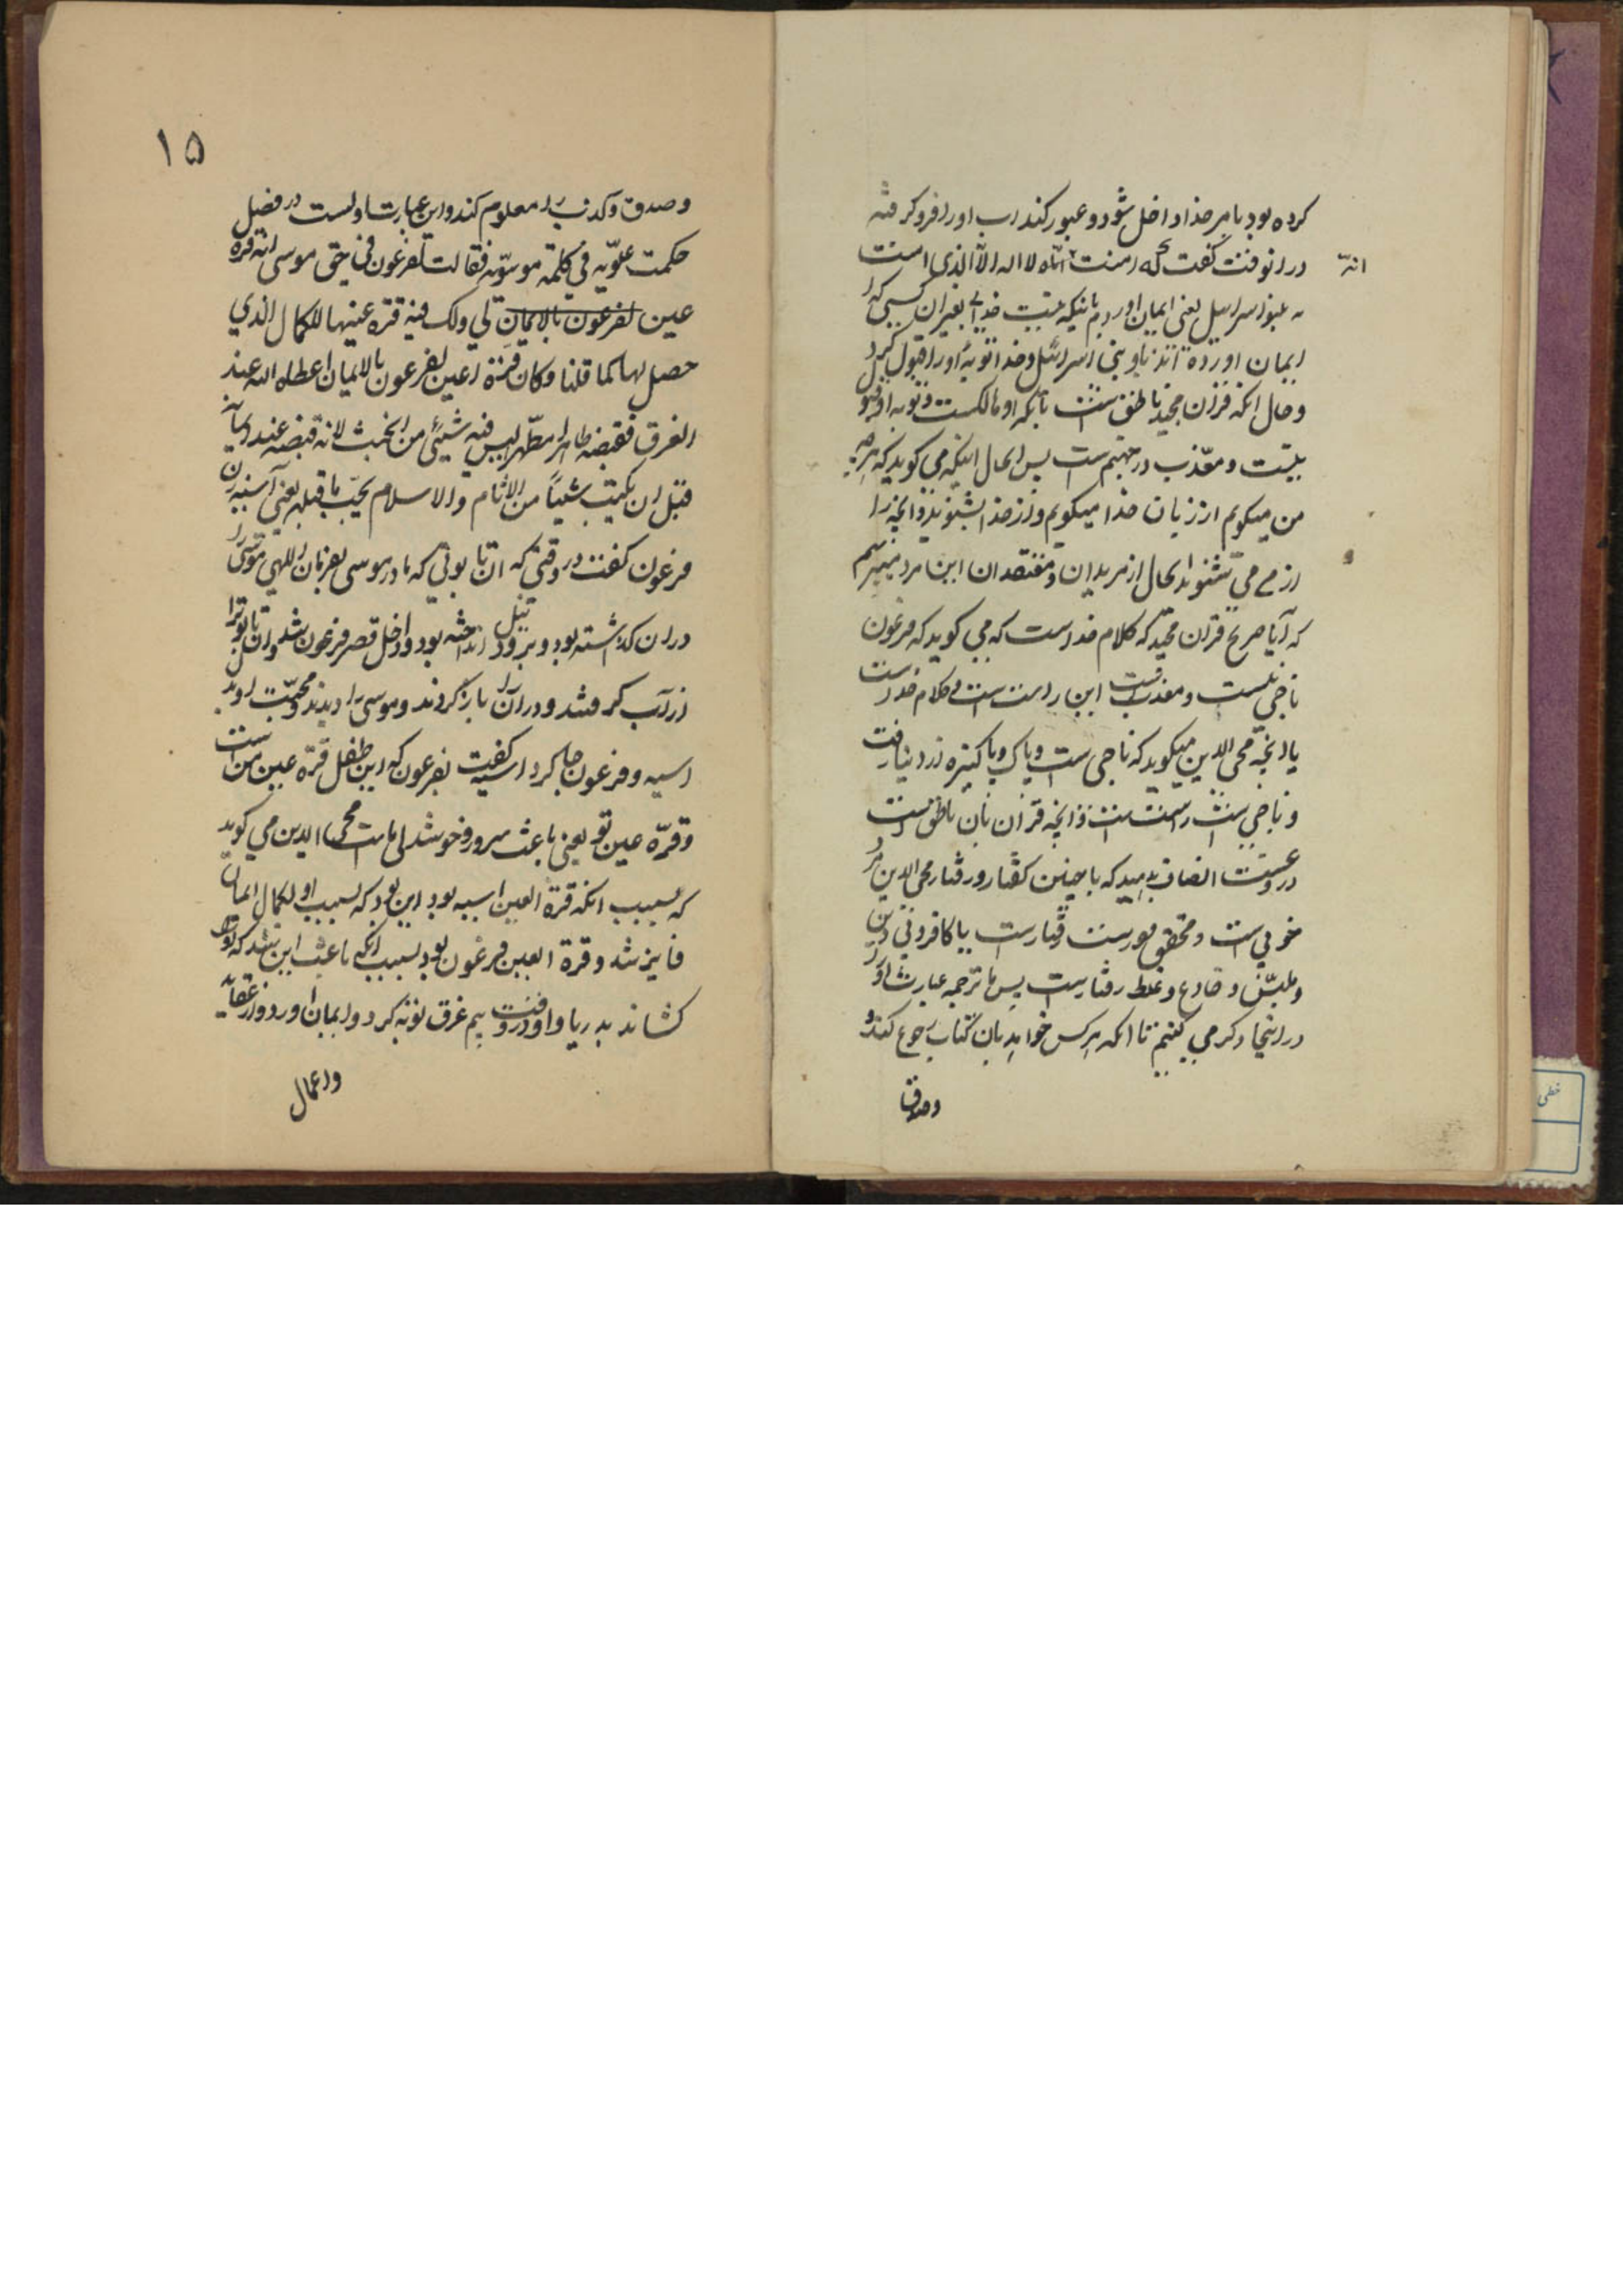 کرده بود بامر خدا داخل شود و عبور کند اب او را فرو کرفته
در انوقت کفت که امنت انه لا اله الا الذی امنت
انه
به بنو اسراییل یعنی ایمان اوردم بانیکه نیست خدایی بغیر ان کسی که
ایمان اورده اند باو بنی اسرائیل و خدا توبهٔ او را قبول کرد
و حال انکه قران مجید ناطق است بآنکه او هالکست و توبه او قبول
نیست و معذب در جهنم است پس الحال اینکه می کوید که هرچه
من میکویم از زبان خدا میکویم و از خدا بشنوند و انچه را
از من می شنوند الحال از مریدان و معتقدان این مرد میپرسم
که آیا صریح قران مجید که کلام خداست که می کوید که فرعون
ناجی نیست و معذبست این راست است و کلام خداست
یا انچه محی الدین میکوید که ناجی است و پاک و پاکیزه از دنیا رفت
و ناجی است راست است و انچه قران بان ناطق است
دروغست انصاف بدهید که با چنین کفتار و رفتار محی الدین مرد
خوبی است و محقق و راست رفتارست یا کافر و بی دین
و ملبّس و خادع و غلط رفتارست پس ما ترجمه عبارت او را
در اینجا ذکر می کنیم تا انکه هرکس خواهد بان کتاب رجوع کند و
و صدق
۱۵
و صدق و کذب را معلوم کند و این عبارت اوست در فصل
حکمت علویّه فی کلمة موسویّه فقالت لفرعون فی حق موسی انه قرة
عین لفرعون بالایمان لی ولک فبه قرة عینها للکمال الذی
حصل لها کما قلنا و کان قرة اعین لفرعون بالایمان اعطاه الله عند
الغرق فقبضه طاهرا مطهرا لیس فیه شیئ من الخبث لانه قبضه عند ایمانه
قبل ان یکتب شیئاً من الاثام والاسلام یجبّ ما قبله یعنی آسیه زن
فرعون کفت در وقتی که ان تابوتی که مادر موسی بفرمان اللهی موسی را
در ان کذاشته بود و برود نیل انداخته بود و داخل قصر فرعون شد و ان تابوت را
از آب کرفتند و در آن را باز کردند و موسی را دیدند و محبت او در
اسیه و فرعون جا کرد اسیه کفت بفرعون که این طفل قرّه عین من است
و قرّه عین تو یعنی باعث سرور و خوشدلی ما است محی الدین می کوید
که سبب انکه قرة العین اسیه بود این بود که بسبب او بکمال ایمان
فایز شد و قرة العین فرعون بود بسبب انکه باعث این شد که او را
کشاند بدریا و او در وقت بیم غرق توبه کرد و ایمان اورد و از عقاید
و اعمال